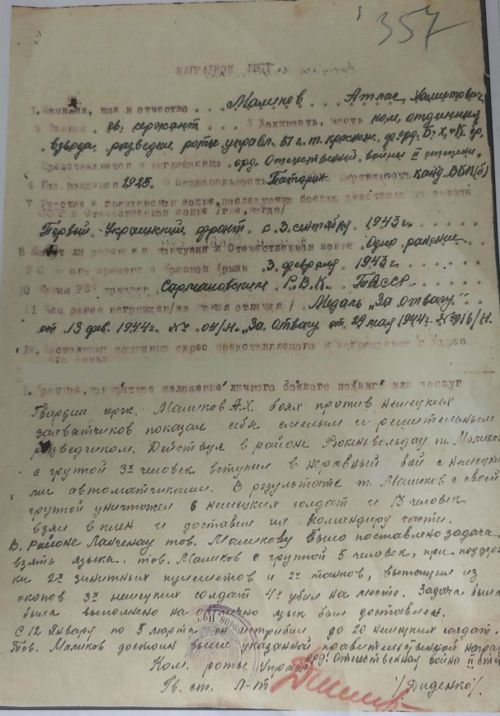 357
НАГРАДНОЙ ЛИСТ
1. Фамилия, имя и отчество Маликов Атлас Хаметович
2 Звание гв. сержант 3 Должность, часть ком. отделения
взвода разведки роты управл. 51 г.т. краснозн.
Представляется к награждению орд. Отечественной войны II степени.
4 Год рождения 1925. 5 Национальность Татарин Партийность канд. ВКП(б)
7 Участие в гражданской войне, последующих боевых действиях по защите
СССР и Отечественной войне /где, когда/
Первый Украинский фронт с 3 сентября 1943 г.
8 Имеет ли ранения и контузии в Отечественной войне Одно ранение
9 С какого времени в Красной Армии 3 февраля 1943 г.
10 Каким РВК призван Сармановским Р.В.К. ТАССР
11 Чем ранее награжден/за какие отличия/ Медаль "За отвагу"
от 13 фев. 1944г. № 04/н. "За отвагу от 29 мая 1944г. № 016/н
12. Постоянный домашний адрес представляемого к награждению и адрес
его семьи
1. Краткое, конкретное изложение личного боевого подвига или заслуг
Гвардии серж. Маликов А.Х. боях против немецких
захватчиков показал себя смелым и решительным
разведчиком. Действуя в районе т. Маликов
с группой 3х человек вступил в неравный бой с немецки
ми автоматчиками. В результате т. Маликов с своей
группой уничтожил 6 немецких солдат и 13 человек
взял в плен и доставил их командиру части.
В районе Лангенау тов. Маликову было поставлено задача
взять языка. тов. Маликов с группой 5 человек, при поддер
ки 2х зенитных пулеметов и 2х танков, вытащил из
окопов 3х немецких солдат 4х убил на месте. Задача была
была выполнено на отлично язык был доставлен.
С 12 Январу по 5 марта он истребил до 20 немецких солдат.
Тов. Маликов достоин выше указанной правительственной награды
орд. Отечественная война II степ
Ком. роты Управл.
Гв. ст. Л-т /Диденко/